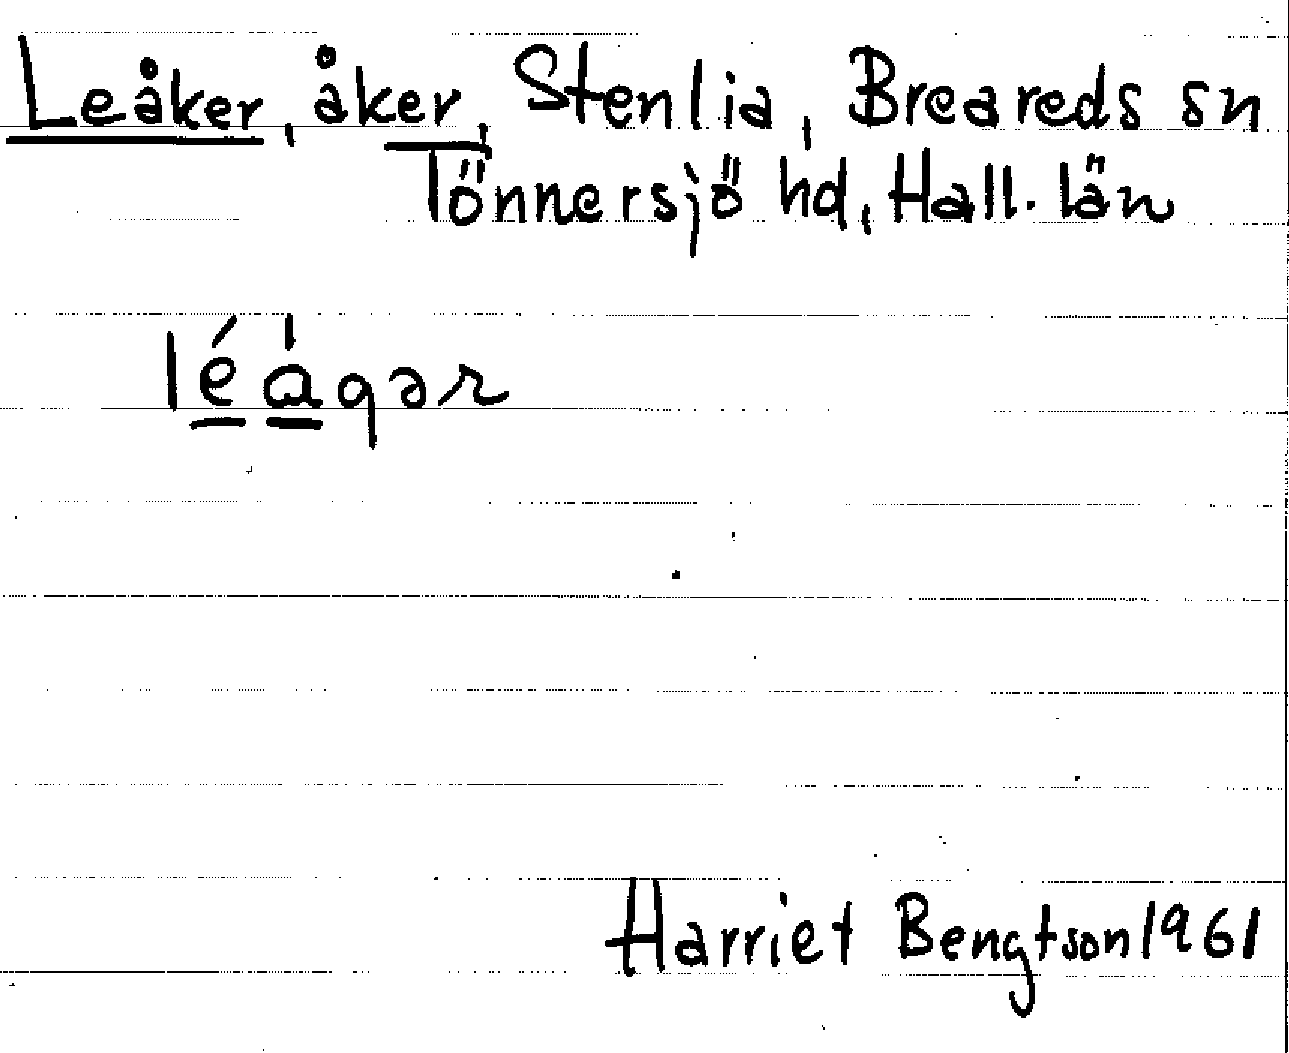 Leåker, åker, Stenlia, Breareds sn
Tönnersjö hd, Hall. län
léágər
Harriet Bengtson 1961